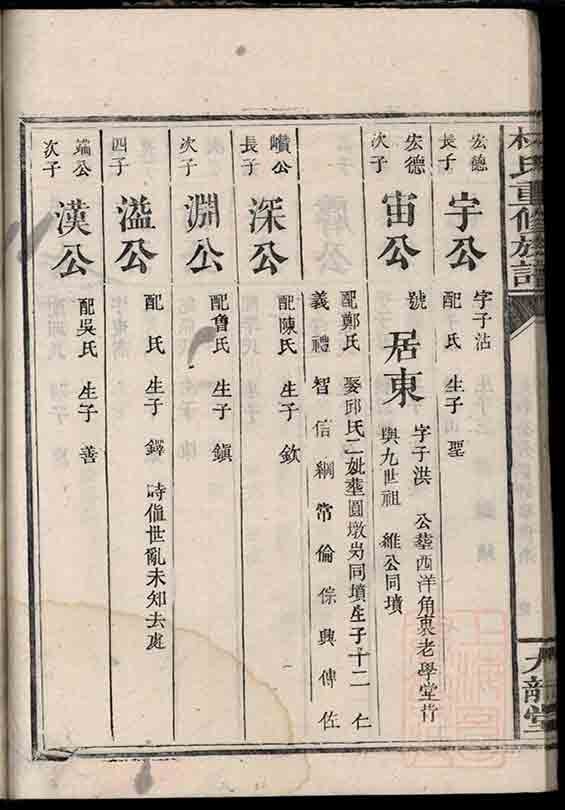 林氏重修族譜
九龍堂
宏德長子 宇公 字子沾 配 氏 生子 聖
宏德次子 宙公 號居東 字子洪 公塟西洋角裏老學堂背
與九世祖 維公同墳
配鄭氏 娶邱氏二妣塟圓墩岃同墳生子十二 仁
義禮智信綱常倫倧興傳佐
巑公長子 深公 配陳氏 生子 欽
次子 淵公 配魯氏 生子 鎭
四子 溢公 配 氏 生子 鐸 時值世亂未知去處
端公次子 漢公 配吳氏 生子 善